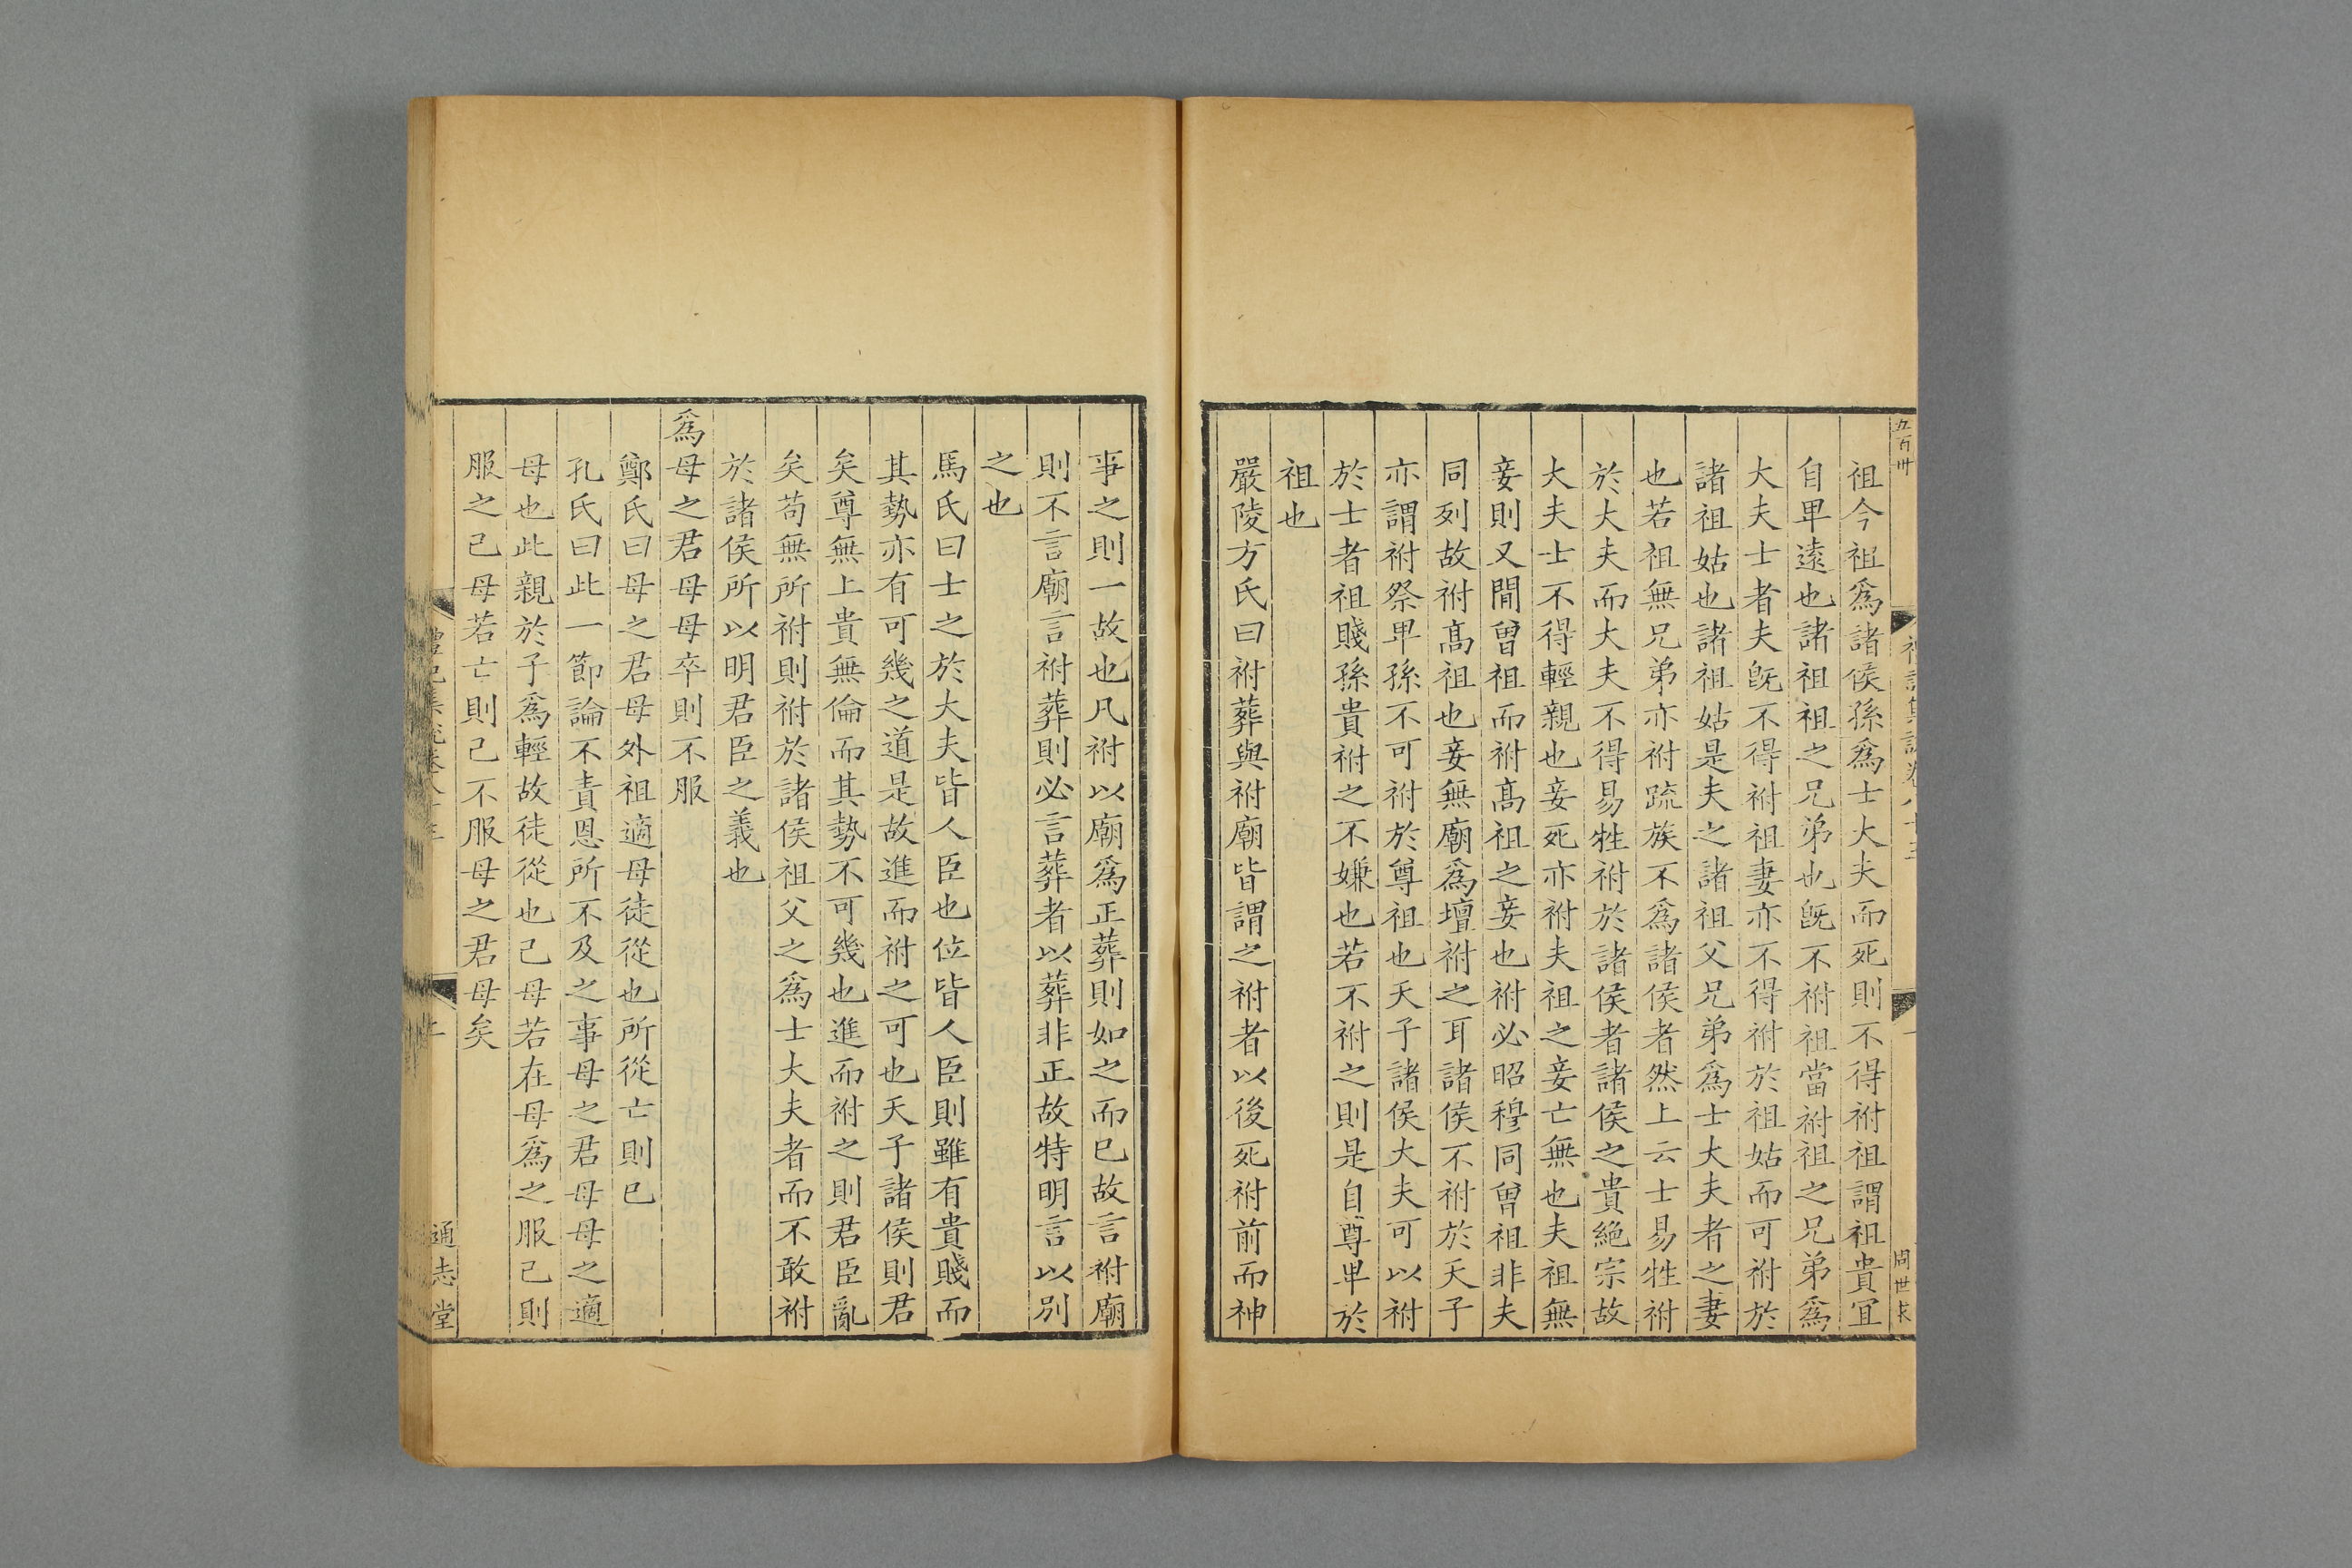 五百卅
祖今祖爲諸侯孫爲士大夫而死則不得祔祖謂祖貴宜
自卑遠也諸祖祖之兄弟也旣不祔祖當祔祖之兄弟爲
大夫士者夫旣不得祔祖妻亦不得祔於祖姑而可祔於
諸祖姑也諸祖姑是夫之諸祖父兄弟爲士大夫者之妻
也若祖無兄弟亦祔疏族不爲諸侯者然上云士易牲祔
於大夫而大夫不得易牲祔於諸侯者諸侯之貴絕宗故
大夫士不得輕親也妾死亦祔夫祖之妾亡無也夫祖無
妾則又閒曾祖而祔高祖之妾也祔必昭穆同曾祖非夫
同列故祔高祖也妾無廟爲壇祔之耳諸侯不祔於天子
亦謂祔祭卑孫不可祔於尊祖也天子諸侯大夫可以祔
於士者祖賤孫貴祔之不嫌也若不祔之則是自尊卑於
祖也
嚴陵方氏曰祔葬與祔廟皆謂之祔者以後死祔前而神
事之則一故也凡祔以廟爲正葬則如之而已故言祔廟
則不言廟言祔葬則必言葬者以葬非正故特明言以別
之也
馬氏曰士之於大夫皆人臣也位皆人臣則雖有貴賤而
其勢亦有可幾之道是故進而祔之可也天子諸侯則君
矣尊無上貴無倫而其勢不可幾也進而祔之則君臣亂
矣苟無所祔則祔於諸侯祖父之爲士大夫者而不敢祔
於諸侯所以明君臣之義也
爲母之君母母卒則不服
鄭氏曰母之君母外祖適母徒從也所從亡則已
孔氏曰此一節論不責恩所不及之事母之君母母之適
母也此親於子爲輕故徒從也己母若在母爲之服己則
服之己母若亡則己不服母之君母矣
禮記集說卷八十三
通志堂